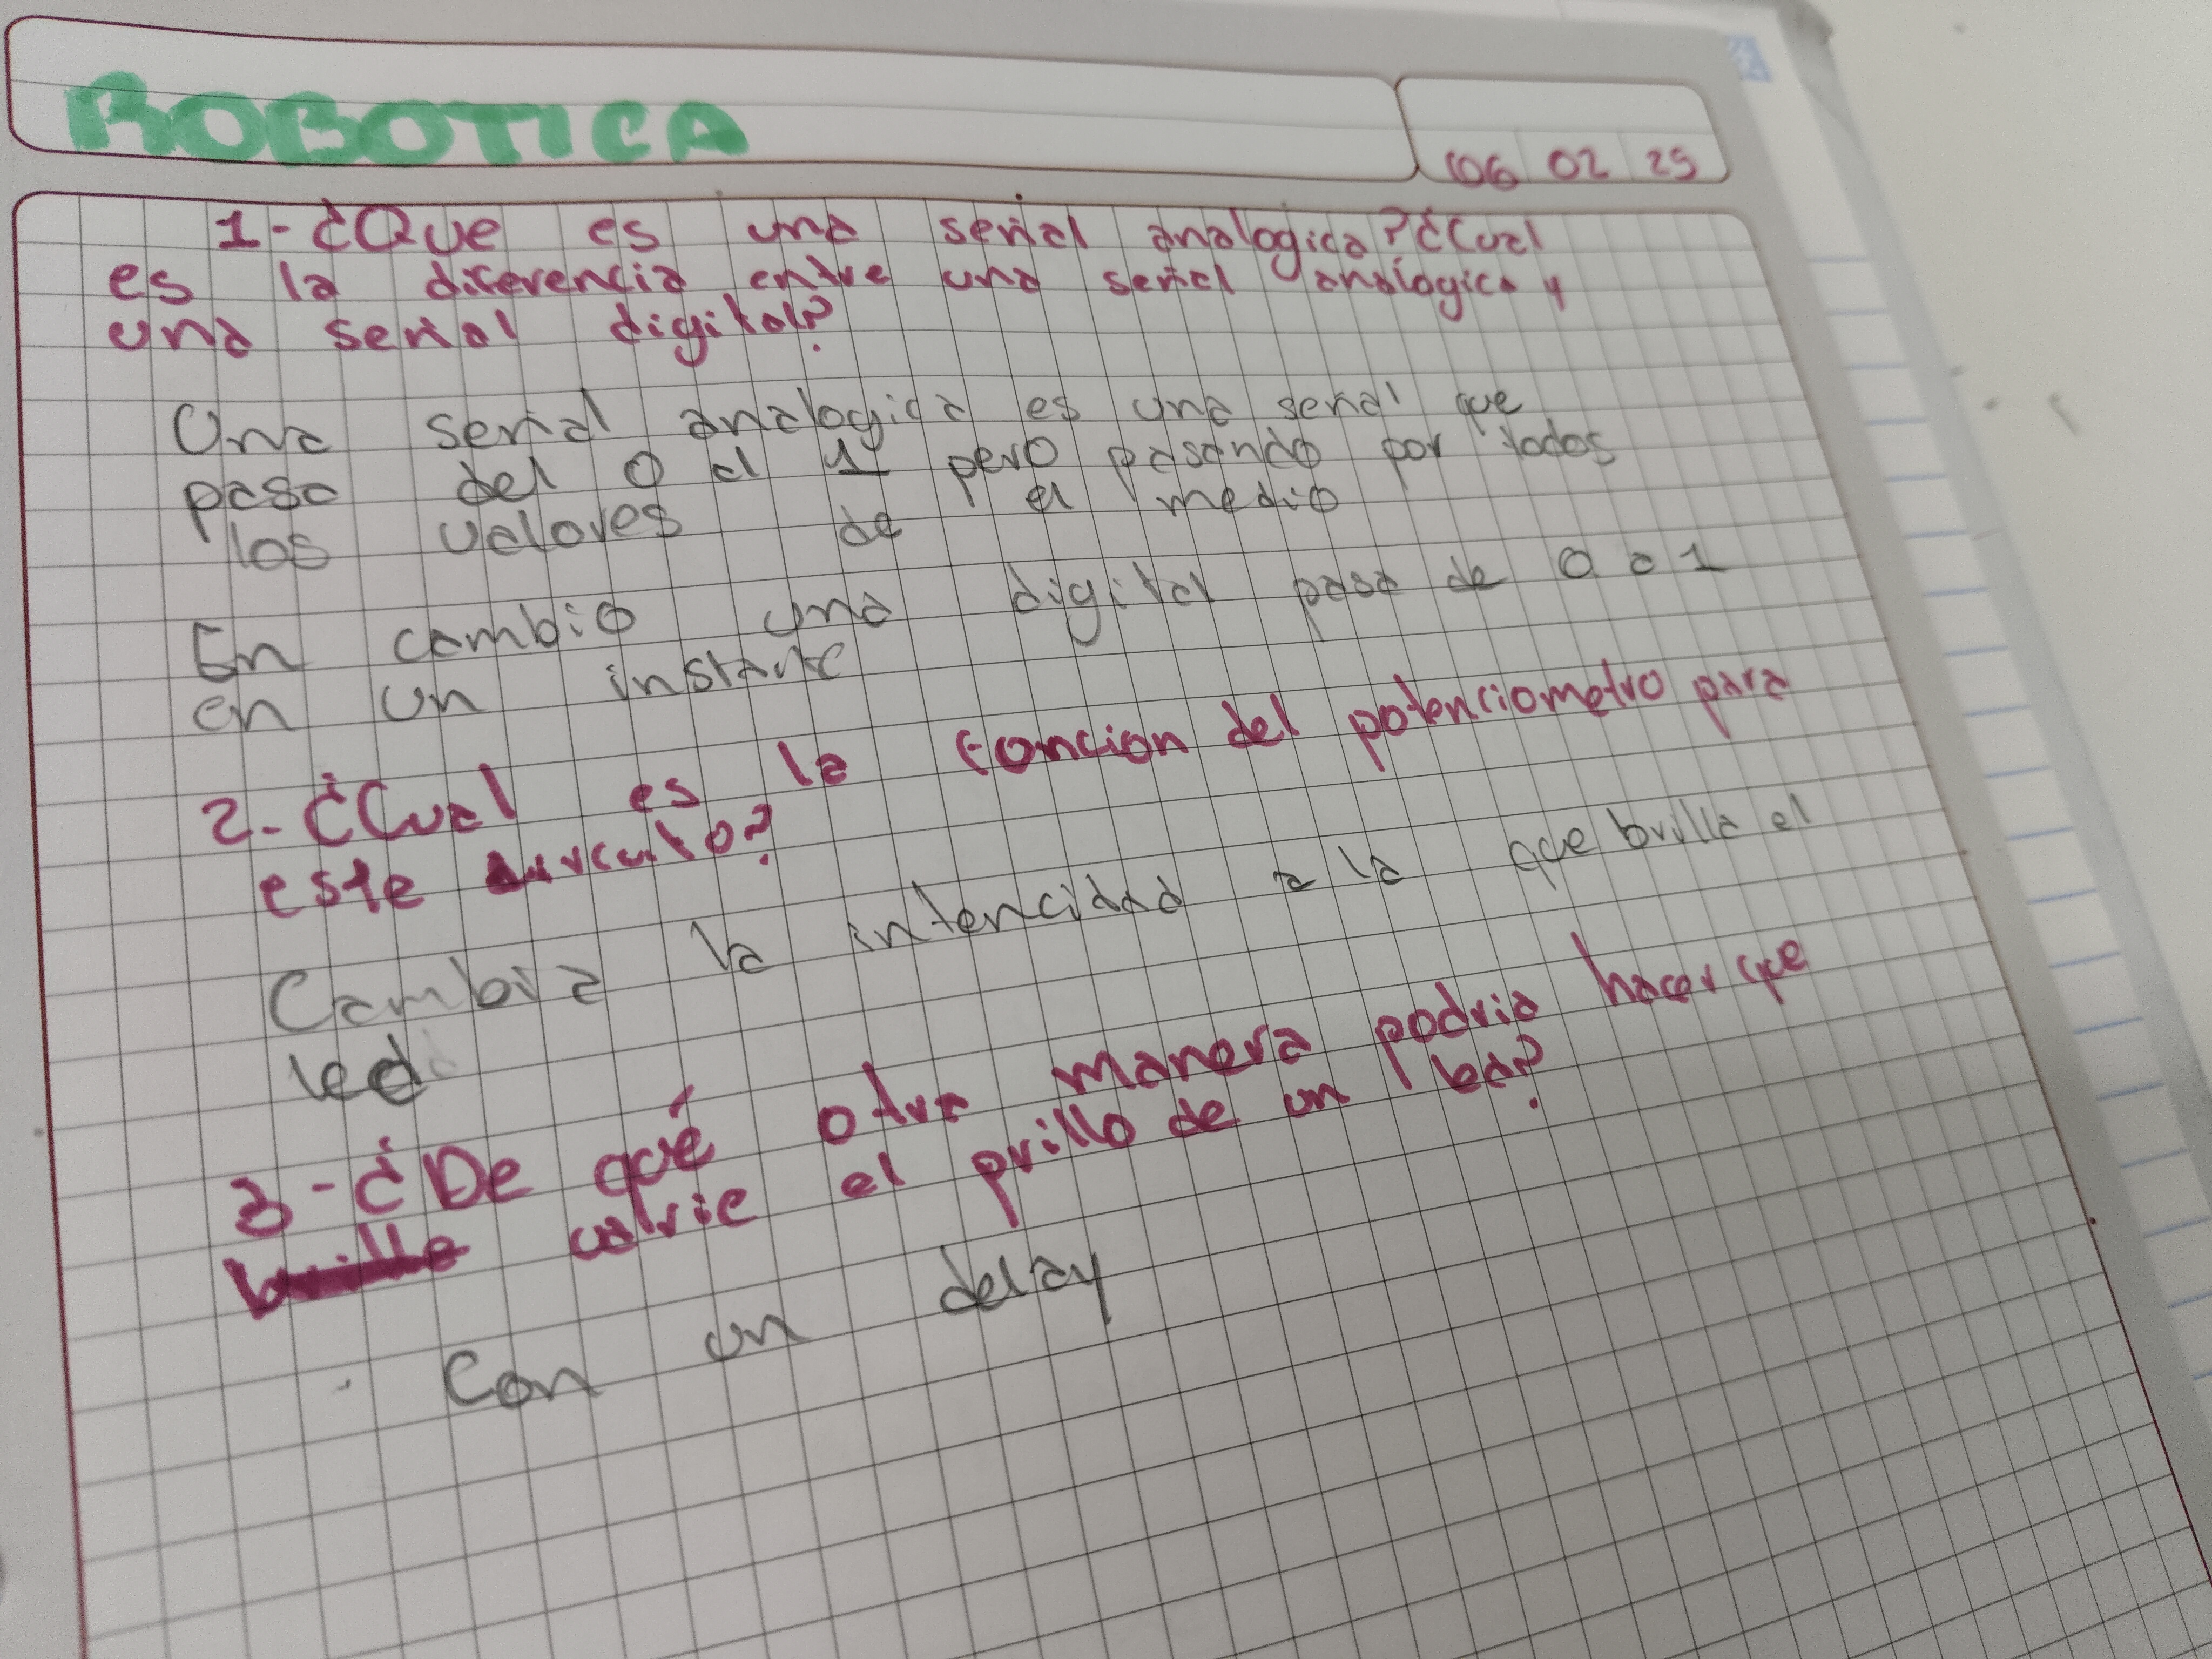 ROBOTICA
06 02 25
1-¿Que es una señal analogica?¿Cual
es la diferencia entre una señal analogica y
una señal digital?
Una señal analogica es una señal que
pasa del 0 al 1 pero pasando por todos
los valores de el medio
En cambio una digital pasa de 0 a 1
en un instante
2-¿Cual es la foncion del potenciometro para
este
Cambia la intencidad a la que brilla el
led
3-¿De qué otra manera podria hacer que
brille valrie el prillo de un
Con un delay